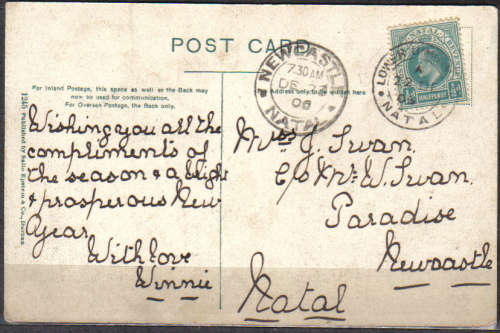 POST CARD
For Inland Postage, this space as well as the Back may
now to be used for communication.
For Oversea Postage, the Back only.
Address only to be written here
1245 Published by Sallo Epstein & Co., Durban
NEWCASTLE
7 30 AM
DE
06
NATAL
LOWER
NATAL
HALFPENNY
Wishing you all the
compliments of
the season & a bright
& prosperous New
Year
With love
Winnie
Mrs J. Swan.
C/o Mr. W. Swan.
Paradise
Newcastle
Natal